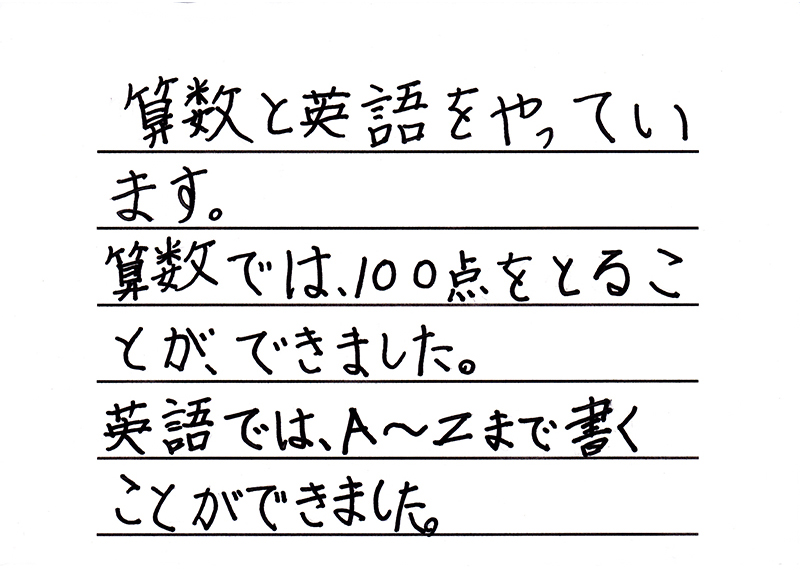 算数と英語をやってい
ます。
算数では、100点をとるこ
とが、できました。
英語では、A〜Zまで書く
ことができました。